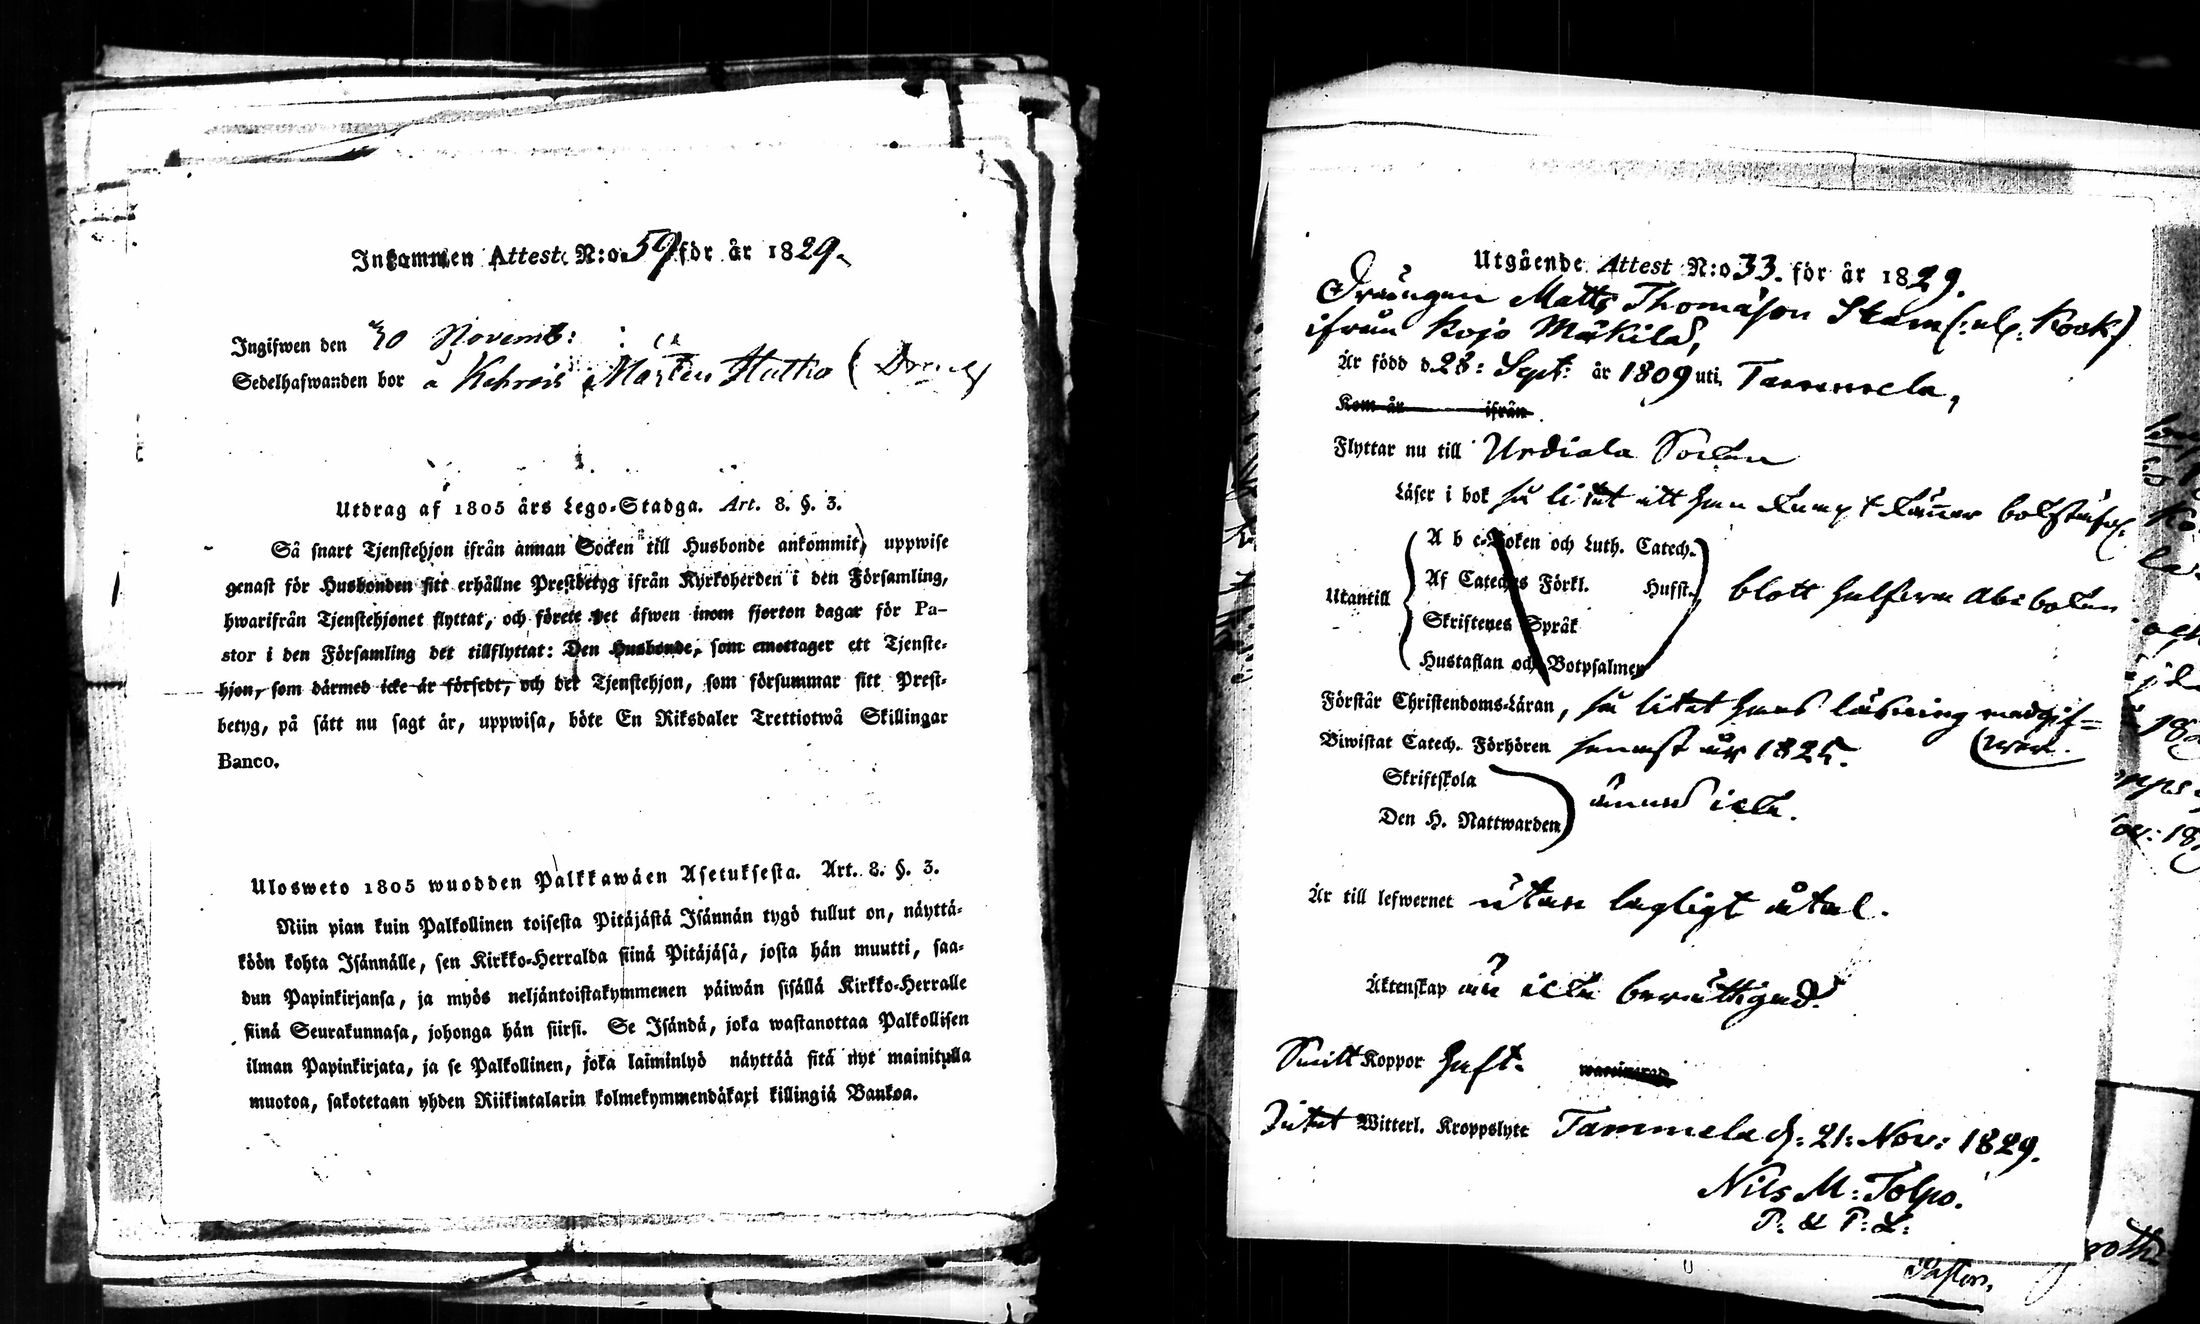 Inkommen Attest N:o 59 för år 1829.
Ingifwen den 30 Novemb:
Sedelhafwanden bor å Kehrois Mårten Huttio (Dreng)
Utdrag af 1805 års Lego-Stadga. Art. 8. §. 3.
Så snart Tjenstehjon ifrån annan Socken till Husbonde ankommit, uppwise
genast för Husbonden sitt erhållne Prestbetyg ifrån Kyrkoherden i den Församling,
hwarifrån Tjenstehjonet flyttat, och förete det äfwen inom fjorton dagar för Pa-
stor i den Församling det tillflyttat: Den Husbonde, som emottager ett Tjenste-
hjon, som därmed icke är försedt, och det Tjenstehjon, som försummar sitt Prest-
betyg, på sätt nu sagt är, uppwisa, böte En Riksdaler Trettiotwå Skillingar
Banco.
Ulosweto 1805 wuodden Palkkawäen Asetuksesta. Art. 8. §. 3.
Niin pian kuin Palkollinen toisesta Pitäjästä Isännän tygö tullut on, näyttä-
köön kohta Isännälle, sen Kirkko-Herralda siinä Pitäjäsä, josta hän muutti, saa-
dun Papinkirjansa, ja myös neljäntoistakymmenen päiwän sisällä Kirkko-Herralle
siinä Seurakunnasa, johonga hän siirsi. Se Isändä, joka wastanottaa Palkollisen
ilman Papinkirjata, ja se Palkollinen, joka laiminlyö näyttää sitä nyt mainitulla
muotoa, sakotetaan yhden Riikintalarin kolmekymmendäkaxi killingiä Bankoa.
Utgående Attest N:o 33. för år 1829.
Drängen Matts Thomasson Stam (:al: Kook)
ifrån Kojo Mäkilä,
Är född d. 28: Sept: år 1809 uti Tammela,
Kom år ifrån
Flyttar nu till Urdiala Socken
Läser i bok så litet att han knapt känner bokstäfv.
Utantill
A b c-Boken och Luth. Catech.
Af Cateches Förkl. Husst.
Skriftenes Språk
Hustaflan och Botpsalmer
blott halfva Abc boken
Förstår Christendoms-Läran, så litet hans läsning medgif=
wer.
Biwistat Catech. Förhören senast år 1825.
Skriftskola
Den H. Nattwarden
ännu icke.
Är till lefwernet utan lagligt åtal.
Äktenskap än icke berättigad.
Smitt Koppor haft.
Intet Witterl. Kroppslyte Tammela d: 21: Nov: 1829.
Nils M: Tolpo.
P: & P: L: